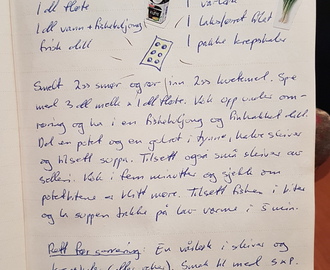 1 dl fløte
1 dl vann + fiskebuljong
frisk dill
1 vårløk
1 laksefjord filet
1 pakke krepsehaler
Smelt 2ss smør og rør inn 2ss hvetemel. Spe
med 3 dl melk & 1 dl fløte. Kok opp under om-
røring og ha i en fiskebuljong og finhakket dill.
Del en potet og en gulrot i tynne, halve skiver
og tilsett suppa. Tilsett også små skiver av
selleri. Kok i fem minutter og sjekk om
potetbitene er blitt møre. Tilsett fisken i biter
og la suppen trekke på lav varme i 5 min.
Rett før servering: En vårløk i skiver og
(eller reker). Smak til med s & p.